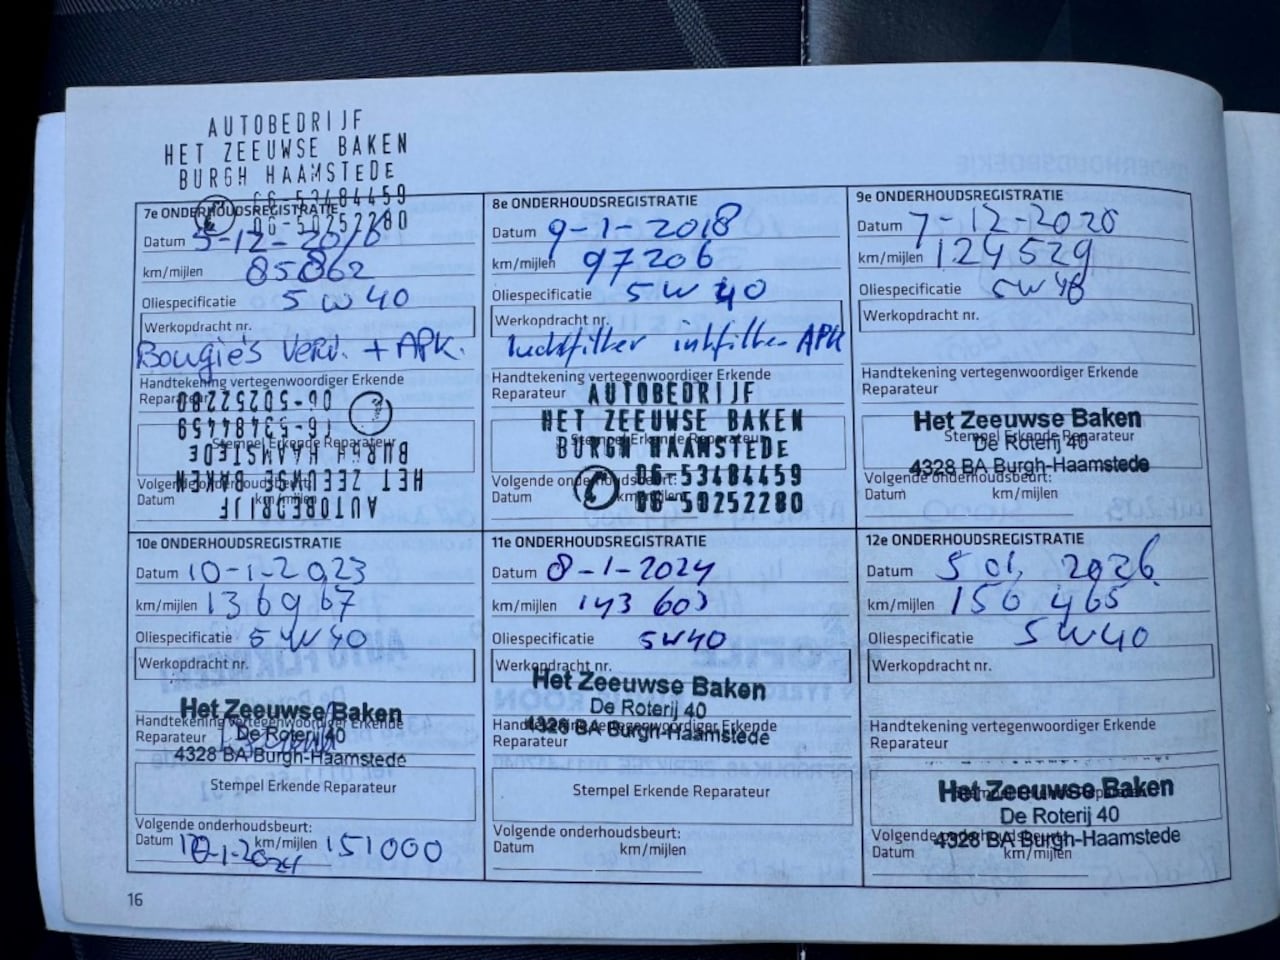 AUTOBEDRIJF
HET ZEEUWSE BAKEN
BURGH HAAMSTEDE
06-53484459
06-50252280
7e ONDERHOUDSREGISTRATIE
Datum 5-12-2016
km/mijlen 85862
Oliespecificatie 5W40
Werkopdracht nr.
Bougie's Verv. + APK.
Handtekening vertegenwoordiger Erkende
Reparateur
AUTOBEDRIJF
HET ZEEUWSE BAKEN
BURGH HAAMSTEDE
06-53484459
06-50252280
Stempel Erkende Reparateur
Volgende onderhoudsbeurt:
Datum km/mijlen
8e ONDERHOUDSREGISTRATIE
Datum 9-1-2018
km/mijlen 97206
Oliespecificatie 5W40
Werkopdracht nr.
APK
Handtekening vertegenwoordiger Erkende
Reparateur
AUTOBEDRIJF
HET ZEEUWSE BAKEN
Stempel Erkende Reparateur
BURGH HAAMSTEDE
06-53484459
06 50252280
Volgende onderhoudsbeurt:
Datum km/mijlen
9e ONDERHOUDSREGISTRATIE
Datum 7-12-2020
km/mijlen 124529
Oliespecificatie
Werkopdracht nr.
Handtekening vertegenwoordiger Erkende
Reparateur
Het Zeeuwse Baken
Stempel Erkende Reparateur
De Roterij 40
4328 BA Burgh-Haamstede
Volgende onderhoudsbeurt:
Datum km/mijlen
10e ONDERHOUDSREGISTRATIE
Datum 10-1-2023
km/mijlen 136967
Oliespecificatie 5W40
Werkopdracht nr.
Het Zeeuwse Baken
Handtekening vertegenwoordiger Erkende
Reparateur
De Roterij 40
4328 BA Burgh-Haamstede
Stempel Erkende Reparateur
Volgende onderhoudsbeurt:
Datum 10-1-2024 km/mijlen 151000
11e ONDERHOUDSREGISTRATIE
Datum 8-1-2024
km/mijlen 143603
Oliespecificatie 5W40
Werkopdracht nr.
Het Zeeuwse Baken
De Roterij 40
Handtekening vertegenwoordiger Erkende
4328 BA Burgh-Haamstede
Reparateur
Stempel Erkende Reparateur
Volgende onderhoudsbeurt:
Datum km/mijlen
12e ONDERHOUDSREGISTRATIE
Datum 5 01, 2026
km/mijlen 150 465
Oliespecificatie 5W40
Werkopdracht nr.
Handtekening vertegenwoordiger Erkende
Reparateur
Het Zeeuwse Baken
De Roterij 40
4328 BA Burgh-Haamstede
Volgende onderhoudsbeurt:
Datum km/mijlen
16